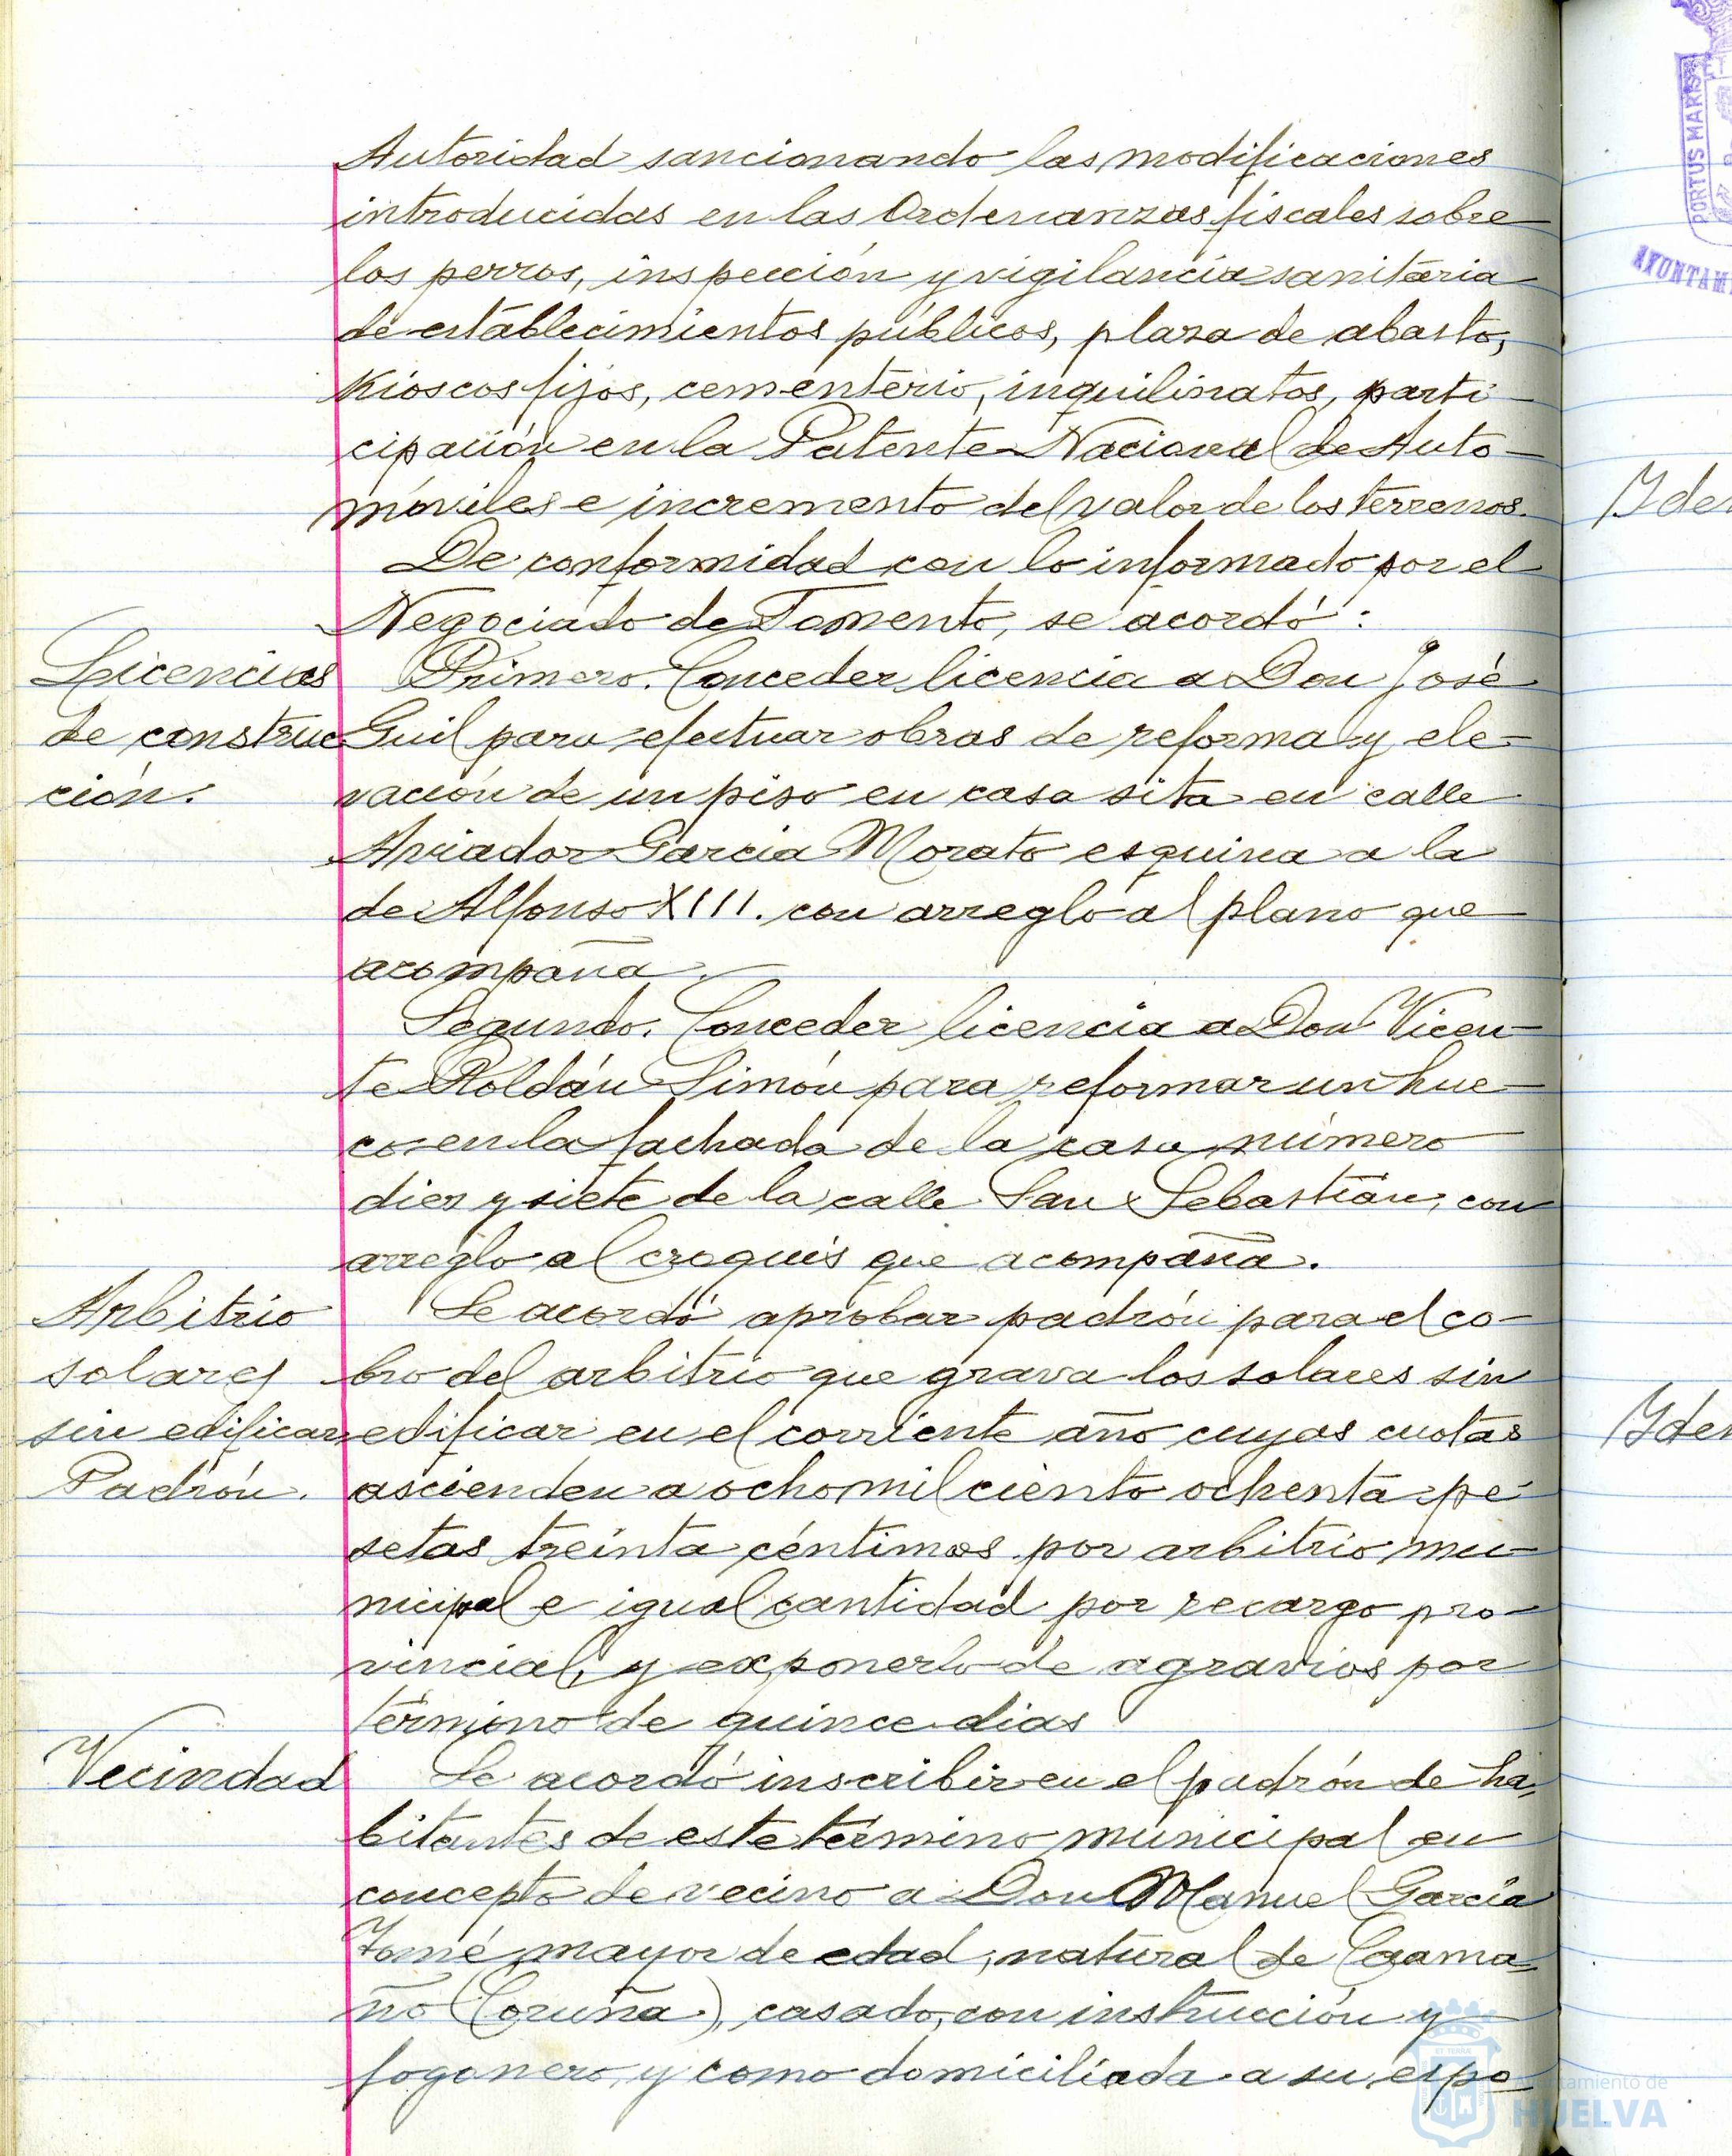 Autoridad sancionando las modificaciones
introducidas en las Ordenanzas fiscales sobre
los perros, inspección y vigilancia sanitaria
de establecimientos públicos, plaza de abasto,
Kioscos fijos, cementerio, inquilinatos, parti-
cipación en la Patente Nacional de Auto-
móviles e incremento del valor de los terrenos.
De conformidad con lo informado por el
Negociado de Fomento, se acordó:
Licencias
de construc
ción.
Primero. Conceder licencia a Don José
Guil para efectuar obras de reforma y ele-
vación de un piso en casa sita en calle
Aviador Garcia Morato esquina a la
de Alfonso XIII. con arreglo al plano que
acompaña.
Segundo. Conceder licencia a Don Vicen-
te Roldán Simón para reformar un hue-
co en la fachada de la casa número
diez y siete de la calle San Sebastián, con
arreglo al croquis que acompaña.
Arbitrio
solares
sin edificar
Padrón.
Se acordó aprobar padrón para el co-
bro del arbitrio que grava los solares sin
edificar en el corriente año cuyas cuotas
ascienden a ocho mil ciento ochenta pe-
setas treinta céntimos por arbitrio mu-
nicipal e igual cantidad por recargo pro-
vincial, y exponerlo de agravios por
término de quince dias
Vecindad
Se acordó inscribir en el padrón de ha-
bitantes de este término municipal en
concepto de vecino a Don Manuel García
Tomé, mayor de edad, natural de Caama-
ño (Coruña), casado, con instrucción y
fogonero, y como domiciliada a su espo-
PORTUS MARIS
ET TERRA
Ayuntamiento de
HUELVA